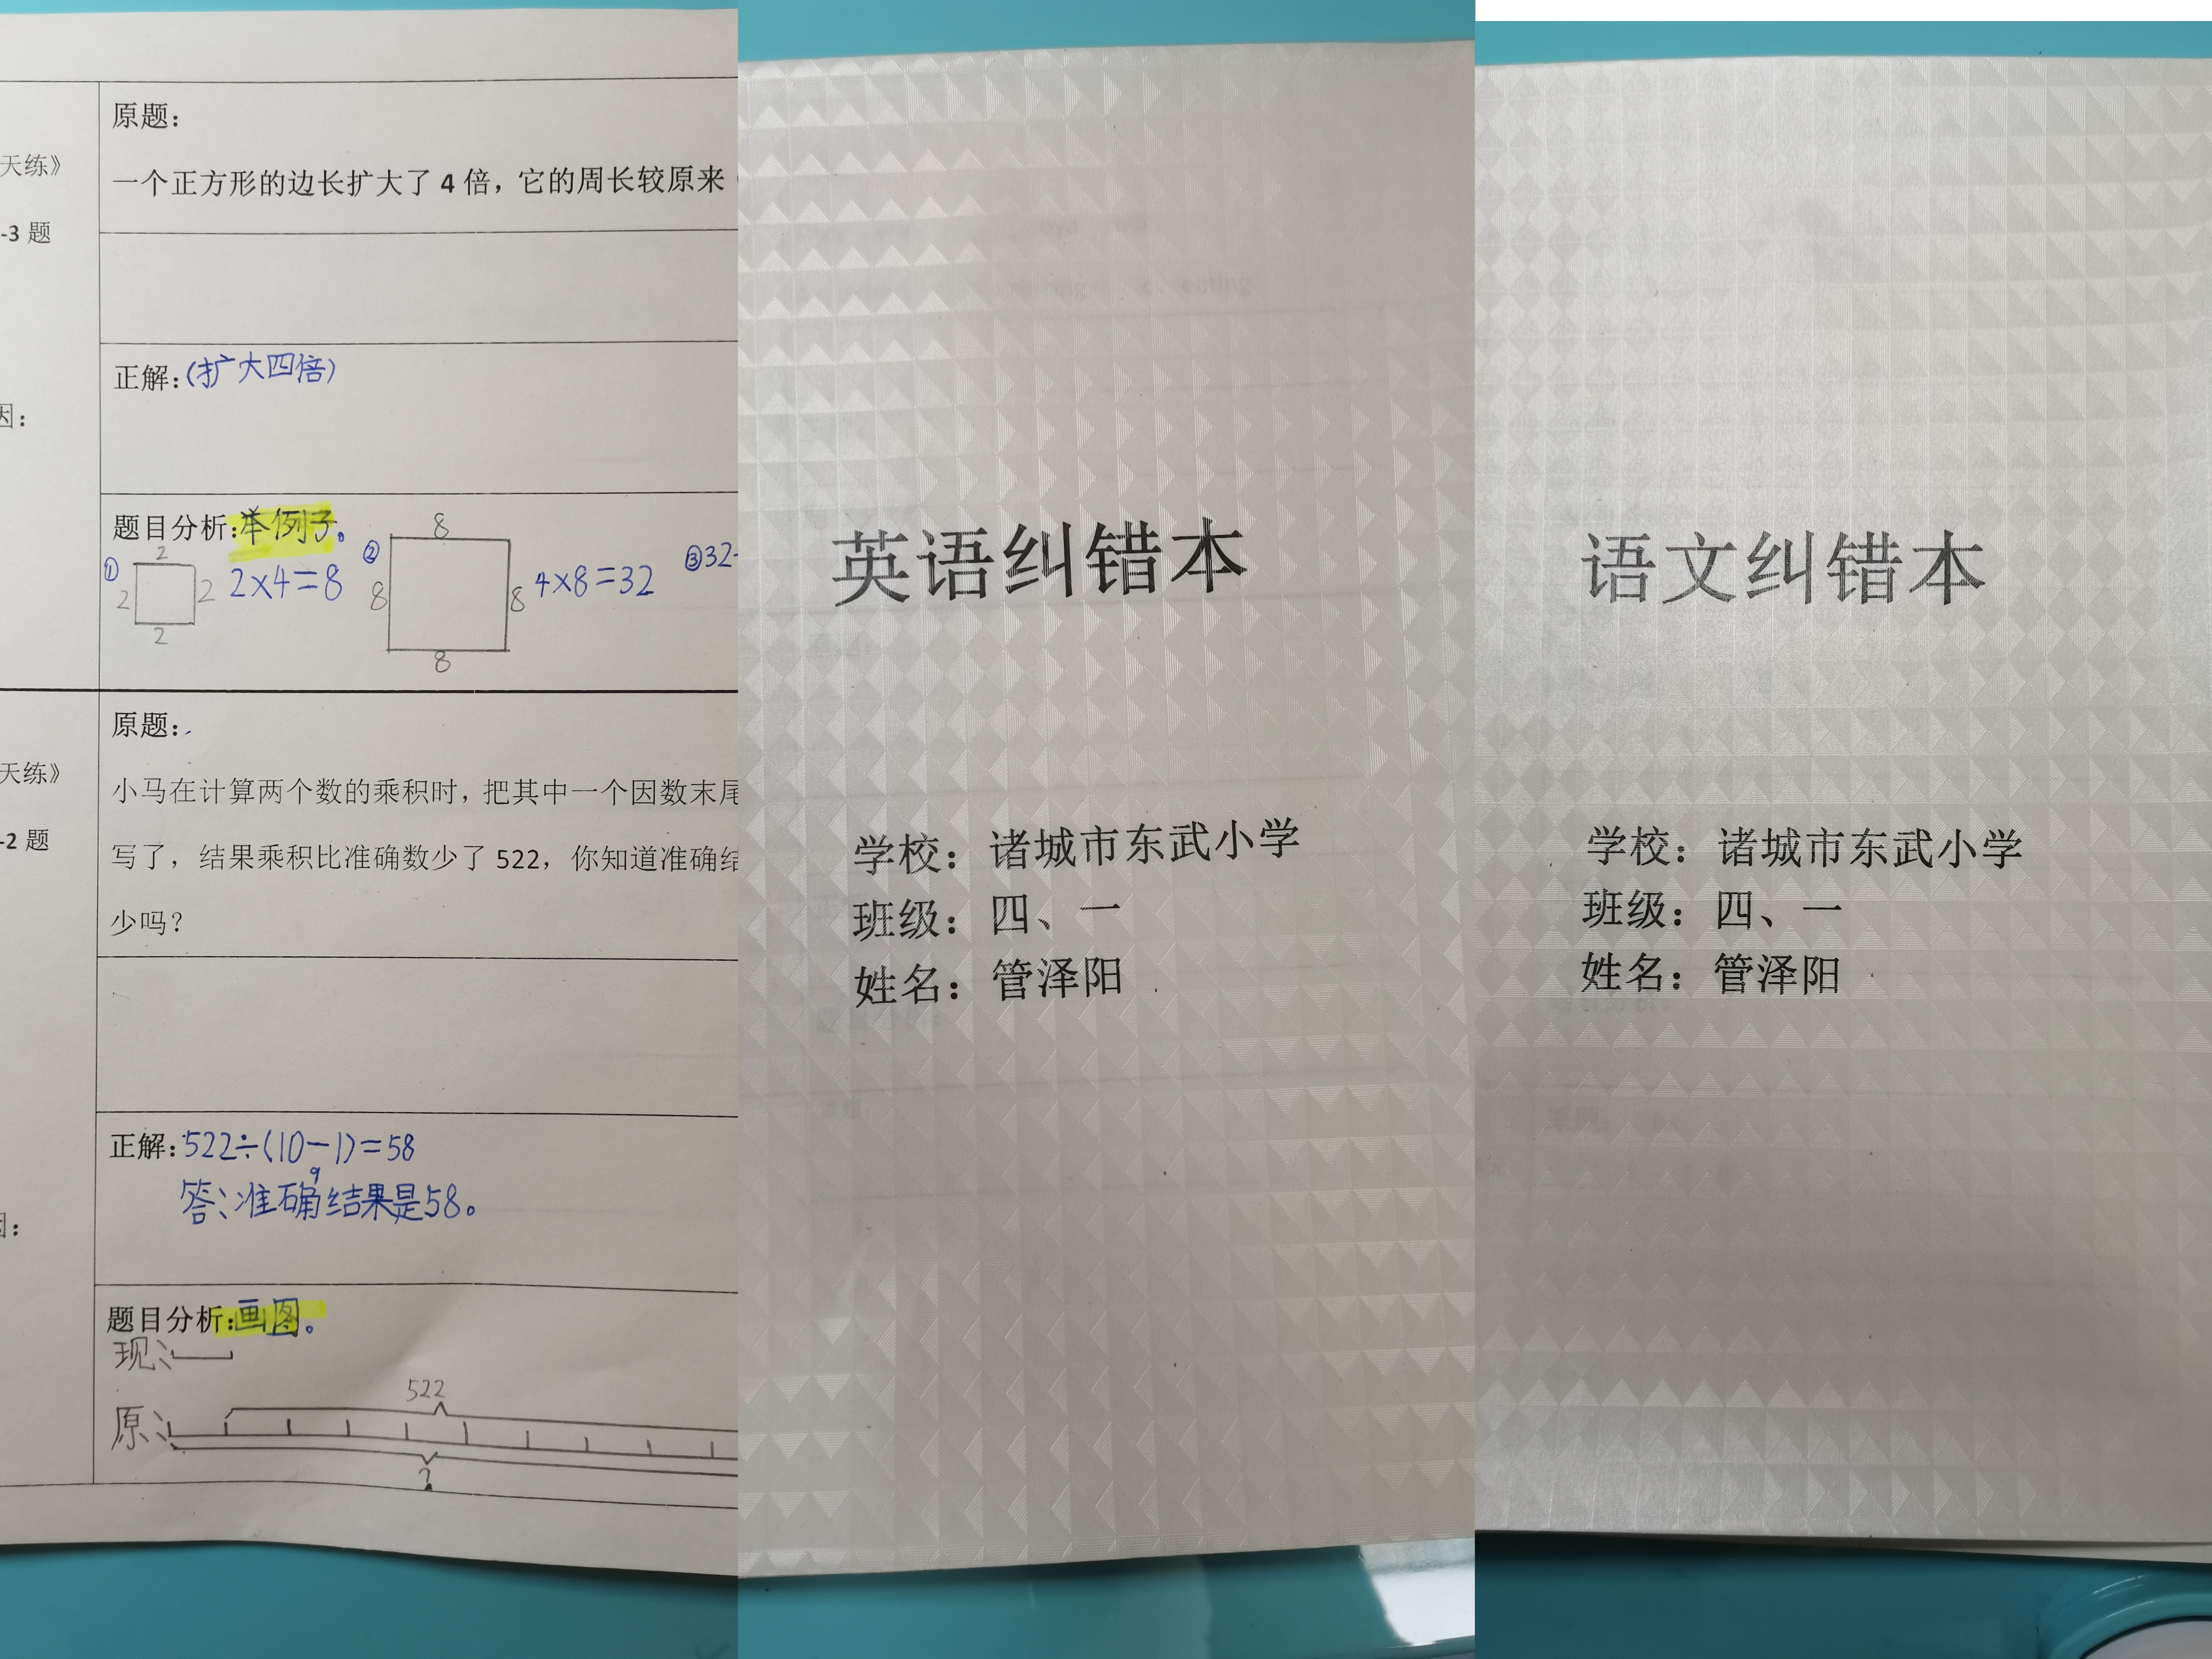 天练》
-3 题
因：
原题：
一个正方形的边长扩大了 4 倍，它的周长较原来
正解：(扩大四倍)
题目分析：举例子。
①
2
2
2
2
2×4=8
②
8
8
8
8
4×8=32
③32
天练》
-2 题
因：
原题：
小马在计算两个数的乘积时，把其中一个因数末尾
写了，结果乘积比准确数少了 522，你知道准确结
少吗？
正解：522÷(10-1)=58
9
答：准确结果是58。
题目分析：画图。
现：
522
原：
?
英语纠错本
学校：诸城市东武小学
班级：四、一
姓名：管泽阳
语文纠错本
学校：诸城市东武小学
班级：四、一
姓名：管泽阳